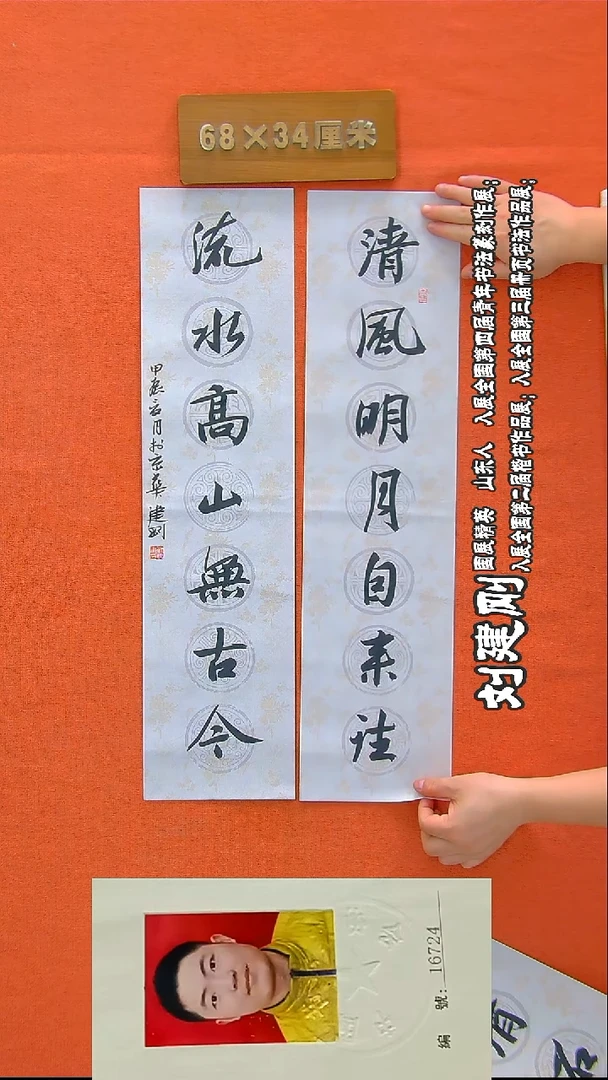 68×34厘米
清風明月自来往
流水高山無古今
建刚
刘建刚
国展精英 山东人 入展全国第四届青年书法篆刻作展；
入展全国第二届楷书作品展；入展全国第三届册页书法作品展；
編號：16724